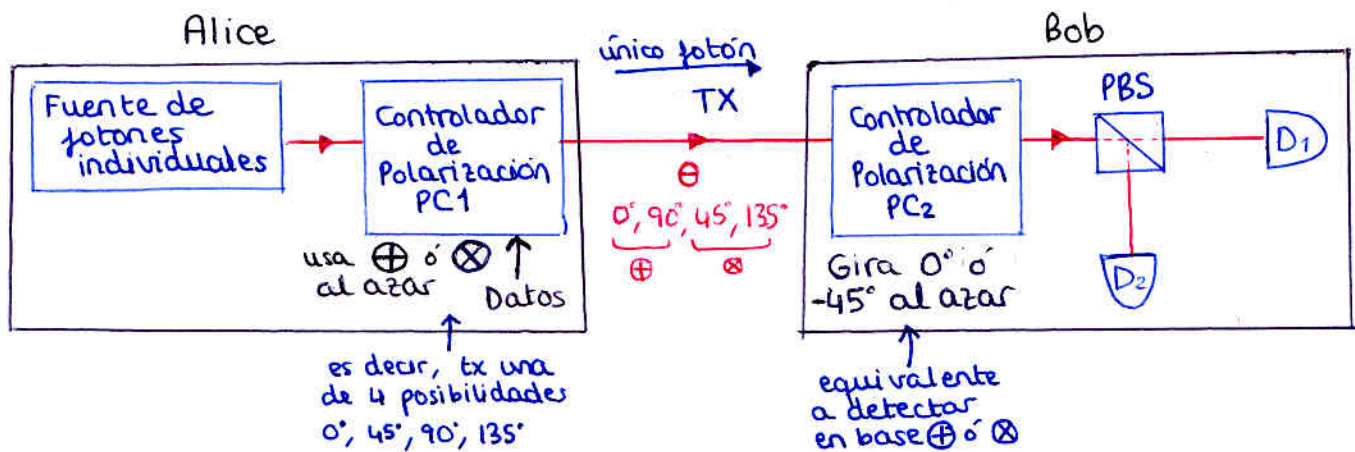 Alice
Fuente de
fotones
individuales
Controlador
de
Polarización
PC1
usa ⊕ ó ⊗
al azar
Datos
es decir, tx una
de 4 posibilidades
0°, 45°, 90°, 135°
único fotón
TX
θ
0°, 90°, 45°, 135°
⊕ ⊗
Bob
Controlador
de
Polarización
PC2
Gira 0° ó
-45° al azar
equivalente
a detectar
en base ⊕ ó ⊗
PBS
D1
D2